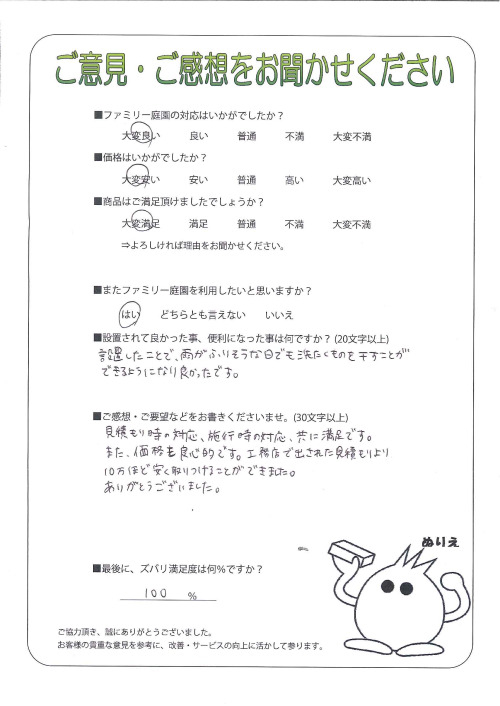 ご意見・ご感想をお聞かせください
■ファミリー庭園の対応はいかがでしたか？
大変良い 良い 普通 不満 大変不満
■価格はいかがでしたか？
大変安い 安い 普通 高い 大変高い
■商品はご満足頂けましたでしょうか？
大変満足 満足 普通 不満 大変不満
⇒よろしければ理由をお聞かせください。
■またファミリー庭園を利用したいと思いますか？
はい どちらとも言えない いいえ
■設置されて良かった事、便利になった事は何ですか？(20文字以上)
設置したことで、雨がふりそうな日でも洗たくものを干すことが
できるようになり良かったです。
■ご感想・ご要望などをお書きくださいませ。(30文字以上)
見積もり時の対応、施行時の対応、共に満足です。
また、価格も良心的です。工務店で出された見積もりより
10万ほど安く取りつけることができました。
ありがとうございました。
ぬりえ
■最後に、ズバリ満足度は何%ですか？
100 %
ご協力頂き、誠にありがとうございました。
お客様の貴重な意見を参考に、改善・サービスの向上に活かして参ります。